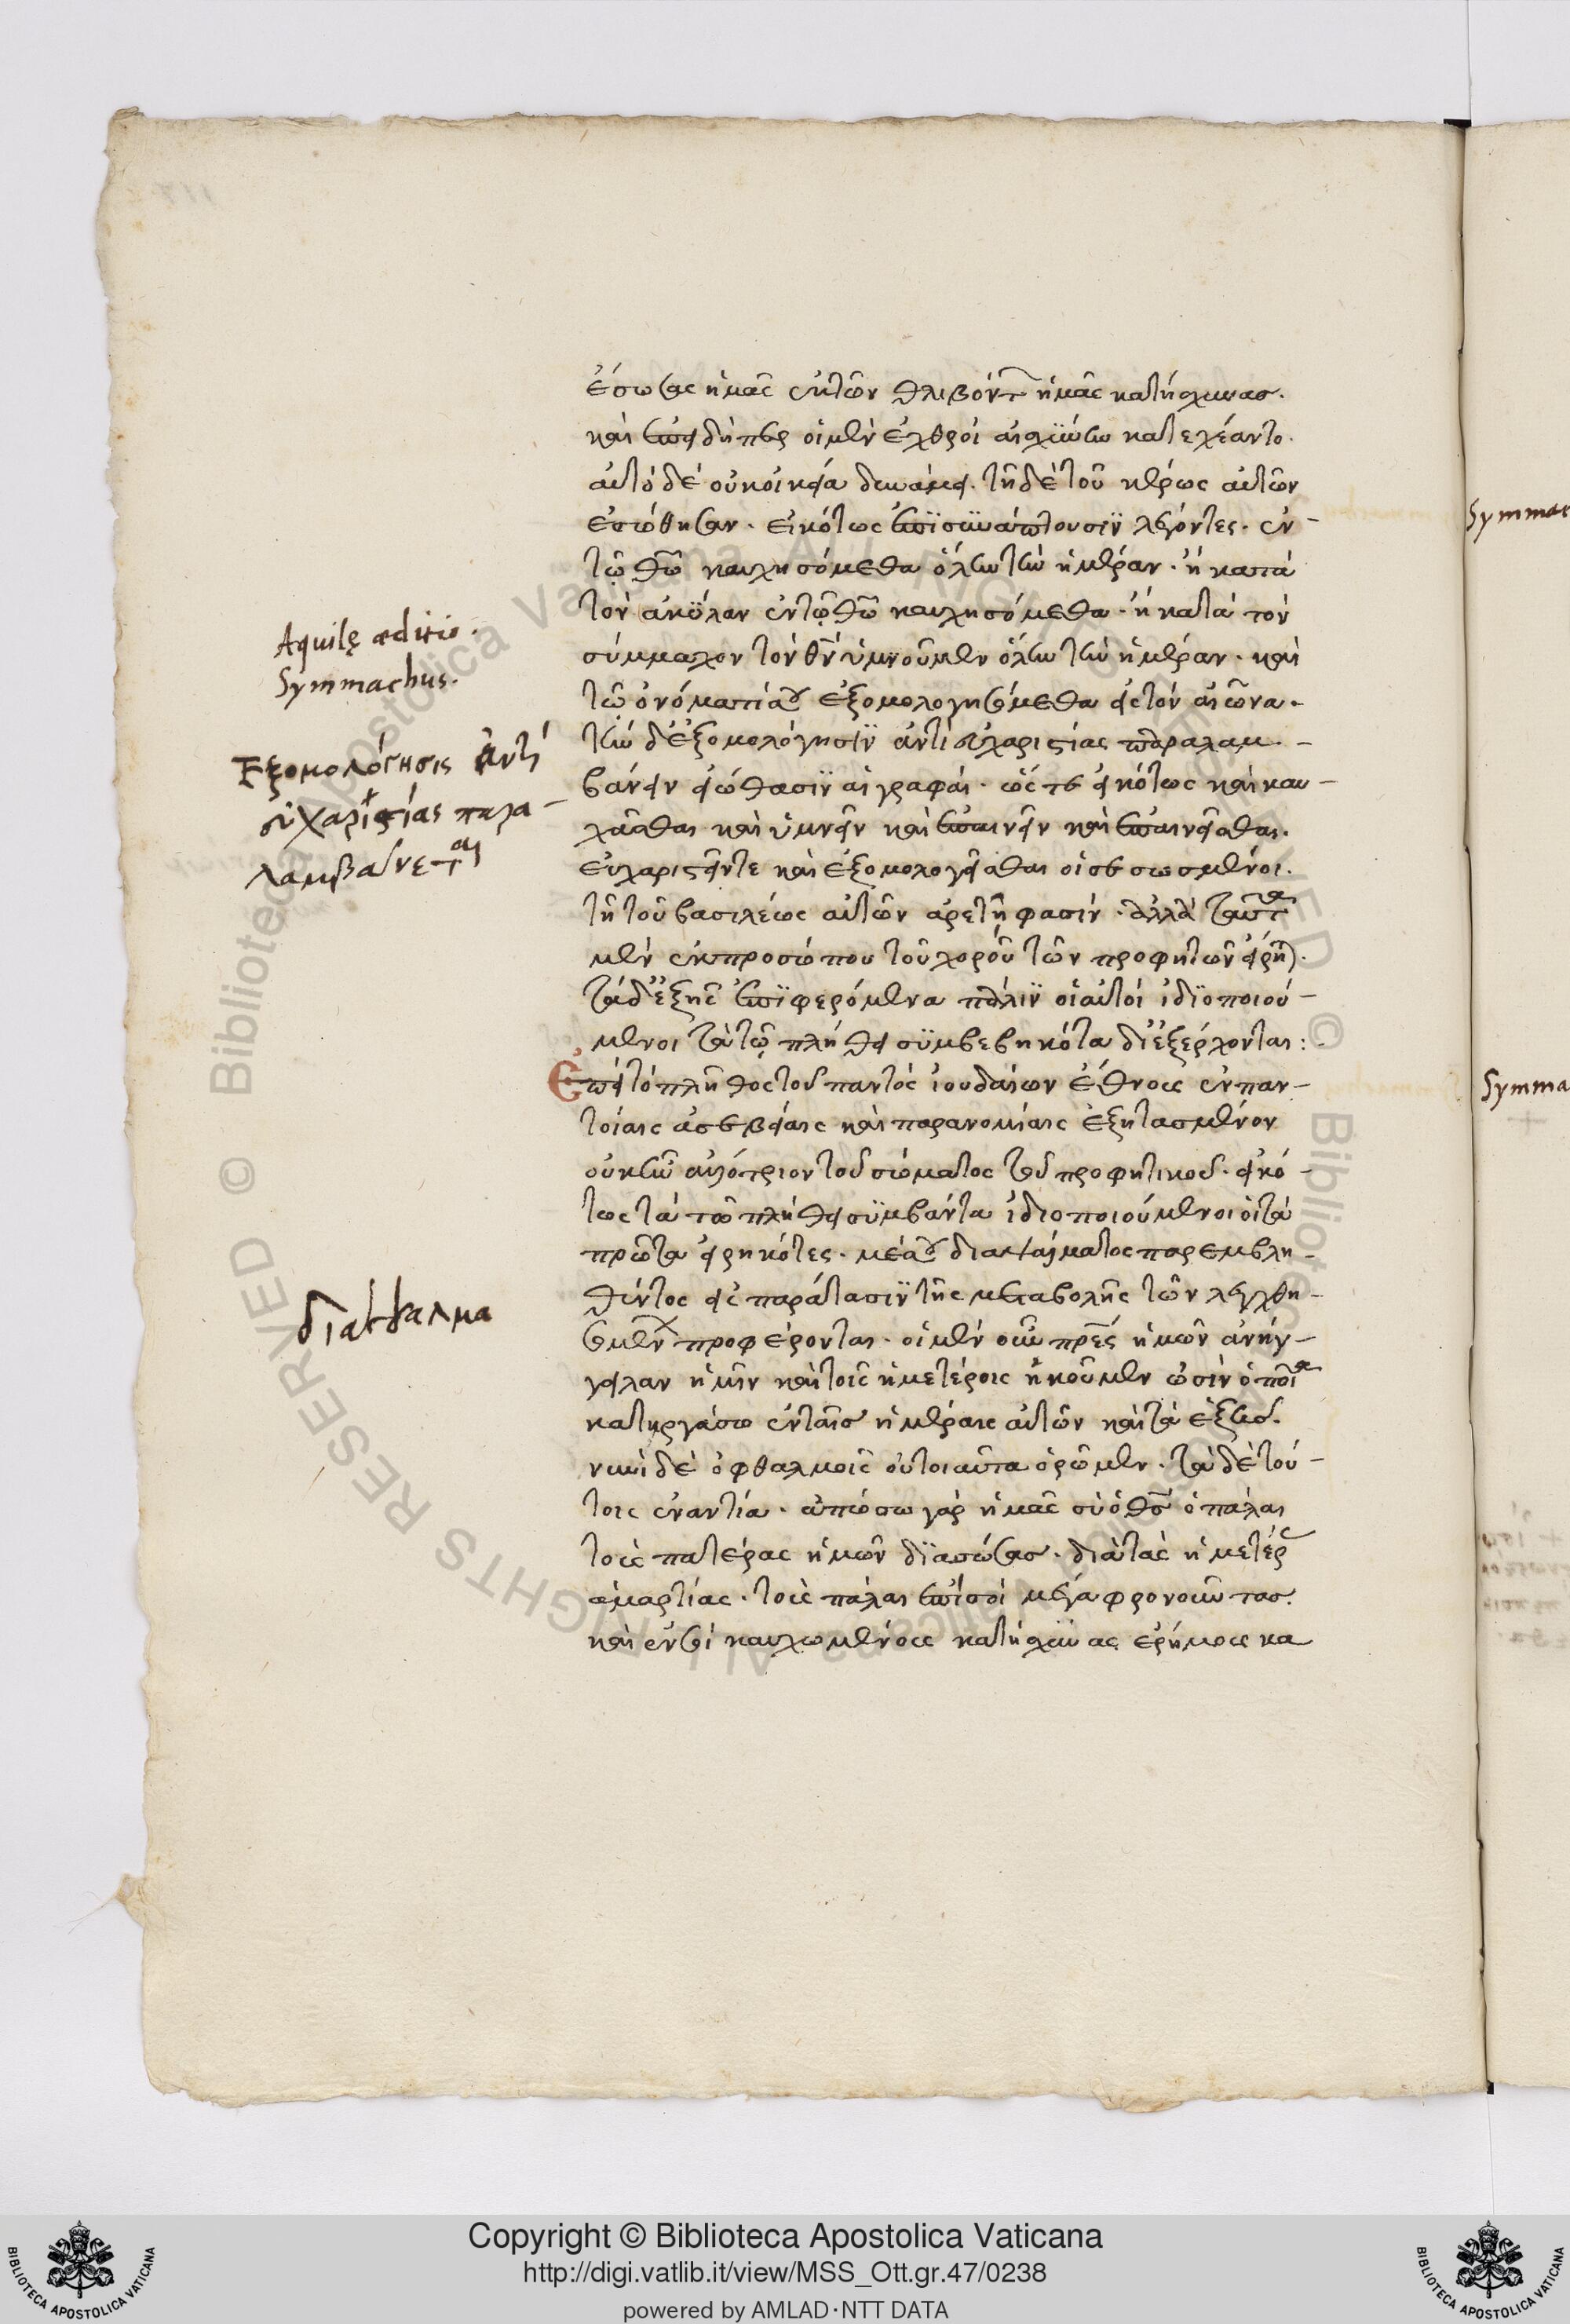 ἔσωσας ἡμᾶς ἐκ τῶν θλιβόντ ἡμᾶς κατήσχυνας.
καὶ ἐπειδήπερ οἱ μὲν ἐχθροὶ αἰσχύνην κατεχέαντο.
αὐτὸ δὲ οὐκ οἰκεία δυνάμει. τῇ δὲ τοῦ κέρως αὐτῶν
ἐσώθησαν. εἰκότως ἐπισυνάπτουσιν λέγοντες. ἐν
τῶ θῶ καυχησόμεθα ὅλην τὴν ἡμέραν. ἢ κατὰ
τὸν ἀκύλαν ἐν τῶ θῶ καυχησόμεθα. ἢ κατὰ τὸν
σύμμαχον τὸν θν ὑμνοῦμεν ὅλην τὴν ἡμέραν. καὶ
τῶ ὀνόματί σου ἐξομολογησόμεθα εἰς τὸν αἰῶνα.
τὴν δὲ ἐξομολόγησιν ἀντὶ εὐχαριστίας παραλαμ-
βάνειν εἰώθασιν αἱ γραφαί. ὥστε εἰκότως καὶ καυ-
χᾶσθαι καὶ ὑμνεῖν καὶ ἐπαινεῖν καὶ ἐπαινεῖσθαι.
εὐχαριστεῖν τε καὶ ἐξομολογεῖσθαι οἱ σεσωσμένοι.
τῇ τοῦ βασιλέως αὐτῶν ἀρετῇ φασίν. ἀλλὰ ταῦτα
μὲν ἐκ προσώπου τοῦ χοροῦ τῶν προφητῶν εἴρη).
τὰ δ' ἑξῆς ἐπιφερόμενα πάλιν οἱ αὐτοὶ ἰδιοποιού-
μενοι τὰ τῶ πλήθει συμβεβηκότα διεξέρχονται:
Ἐπεὶ τὸ πλῆθος τοῦ παντὸς ἰουδαίων ἔθνους ἐν παν-
τοίαις ἀσεβείαις καὶ παρανομίαις ἐξητασμένον
οὐκ ἦν ἀλλότριον τοῦ σώματος τοῦ προφητικοῦ. εἰκό-
τως τὰ τῶ πλήθει συμβάντα ἰδιοποιούμενοι οἱ τὰ
πρῶτα εἰρηκότες. μέσου διαψάλματος παρεμβλη-
θέντος εἰς παράστασιν τῆς μεταβολῆς τῶν λεχθη-
σομένων προφέρονται. οἱ μὲν οὖν πρες ἡμῶν ἀνήγ-
γειλαν ἡμῖν καὶ τοῖς ἡμετέροις ἠκοῦμεν ὠσὶν ὁποῖα
κατηργάσω ἐν ταῖς ἡμέραις αὐτῶν καὶ τὰ ἑξῆς.
νυνὶ δὲ ὀφθαλμοῖς οὐ τοιαῦτα ὁρῶμεν. τὰ δὲ τού-
τοις ἐναντία. ἀπώσω γὰρ ἡμᾶς σὺ ὁ θς ὁ πάλαι
τοὺς πατέρας ἡμῶν διασώσας. διὰ τὰς ἡμετέρας
ἁμαρτίας. τοὺς πάλαι ἐπὶ σοὶ μέγα φρονοῦντας.
καὶ ἐν σοὶ καυχωμένους κατήσχυνας ἐρήμους κα
Aquilę æditio.
Symmachus.
Ἐξομολόγησις ἀντὶ
εὐχαριστίας παρα-
λαμβάνεται
διάψαλμα
Symmac
Symma
Copyright © Biblioteca Apostolica Vaticana
http://digi.vatlib.it/view/MSS_Ott.gr.47/0238
powered by AMLAD·NTT DATA
BIBLIOTECA APOSTOLICA VATICANA
BIBLIOTECA APOSTOLICA VATICANA